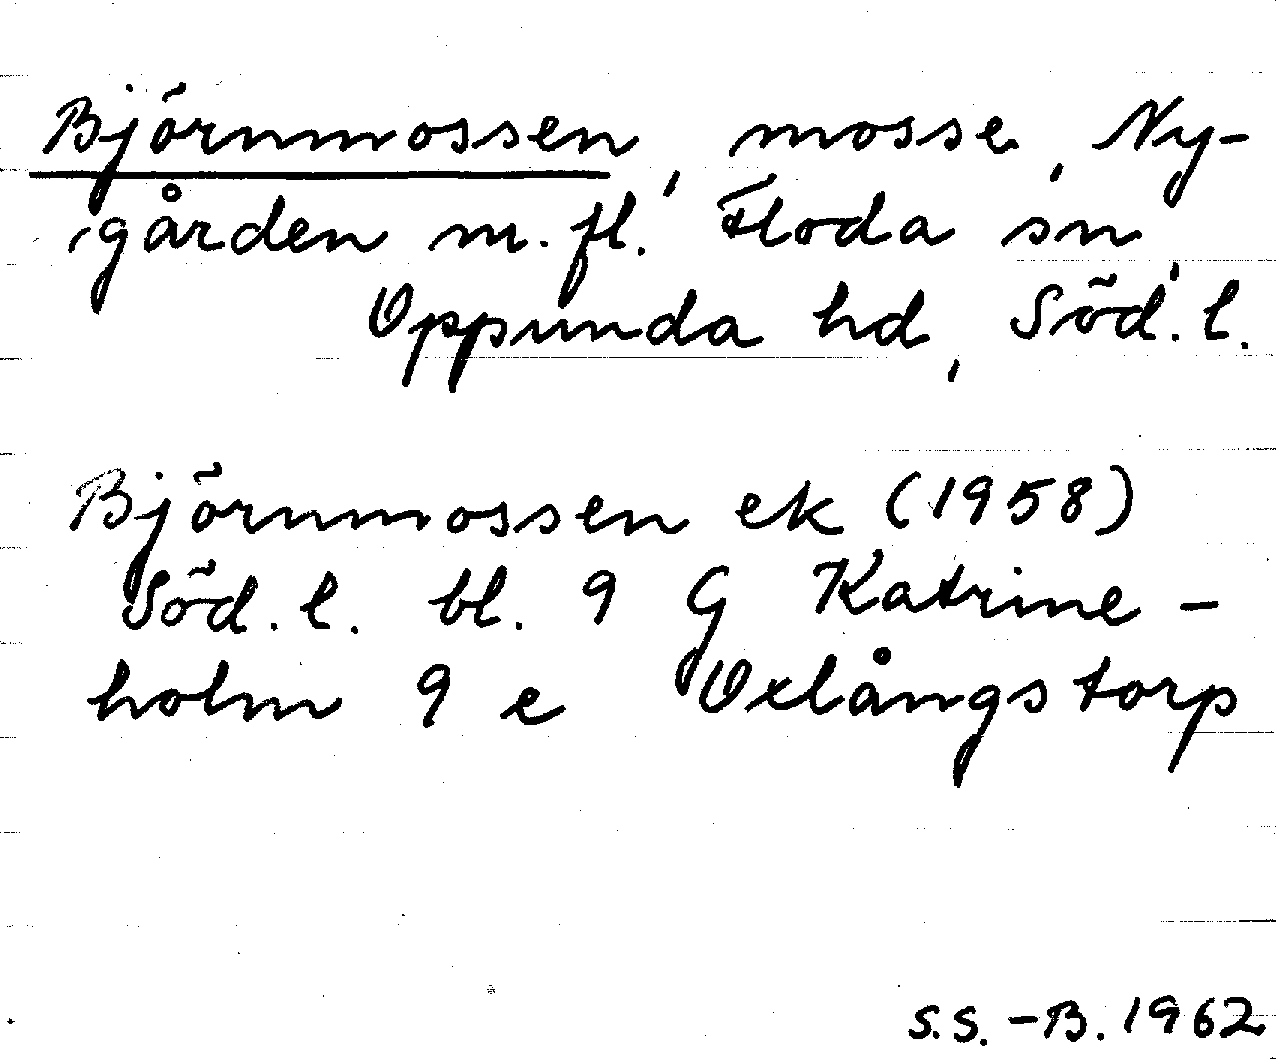 Björnmossen, mosse, Ny-
gården m.fl. Floda sn,
Oppunda hd, Söd.l.
Björnmossen ek (1958)
Söd.l. bl. 9 G Katrine-
holm 9 e Uxlångstorp
S.S.-B. 1962